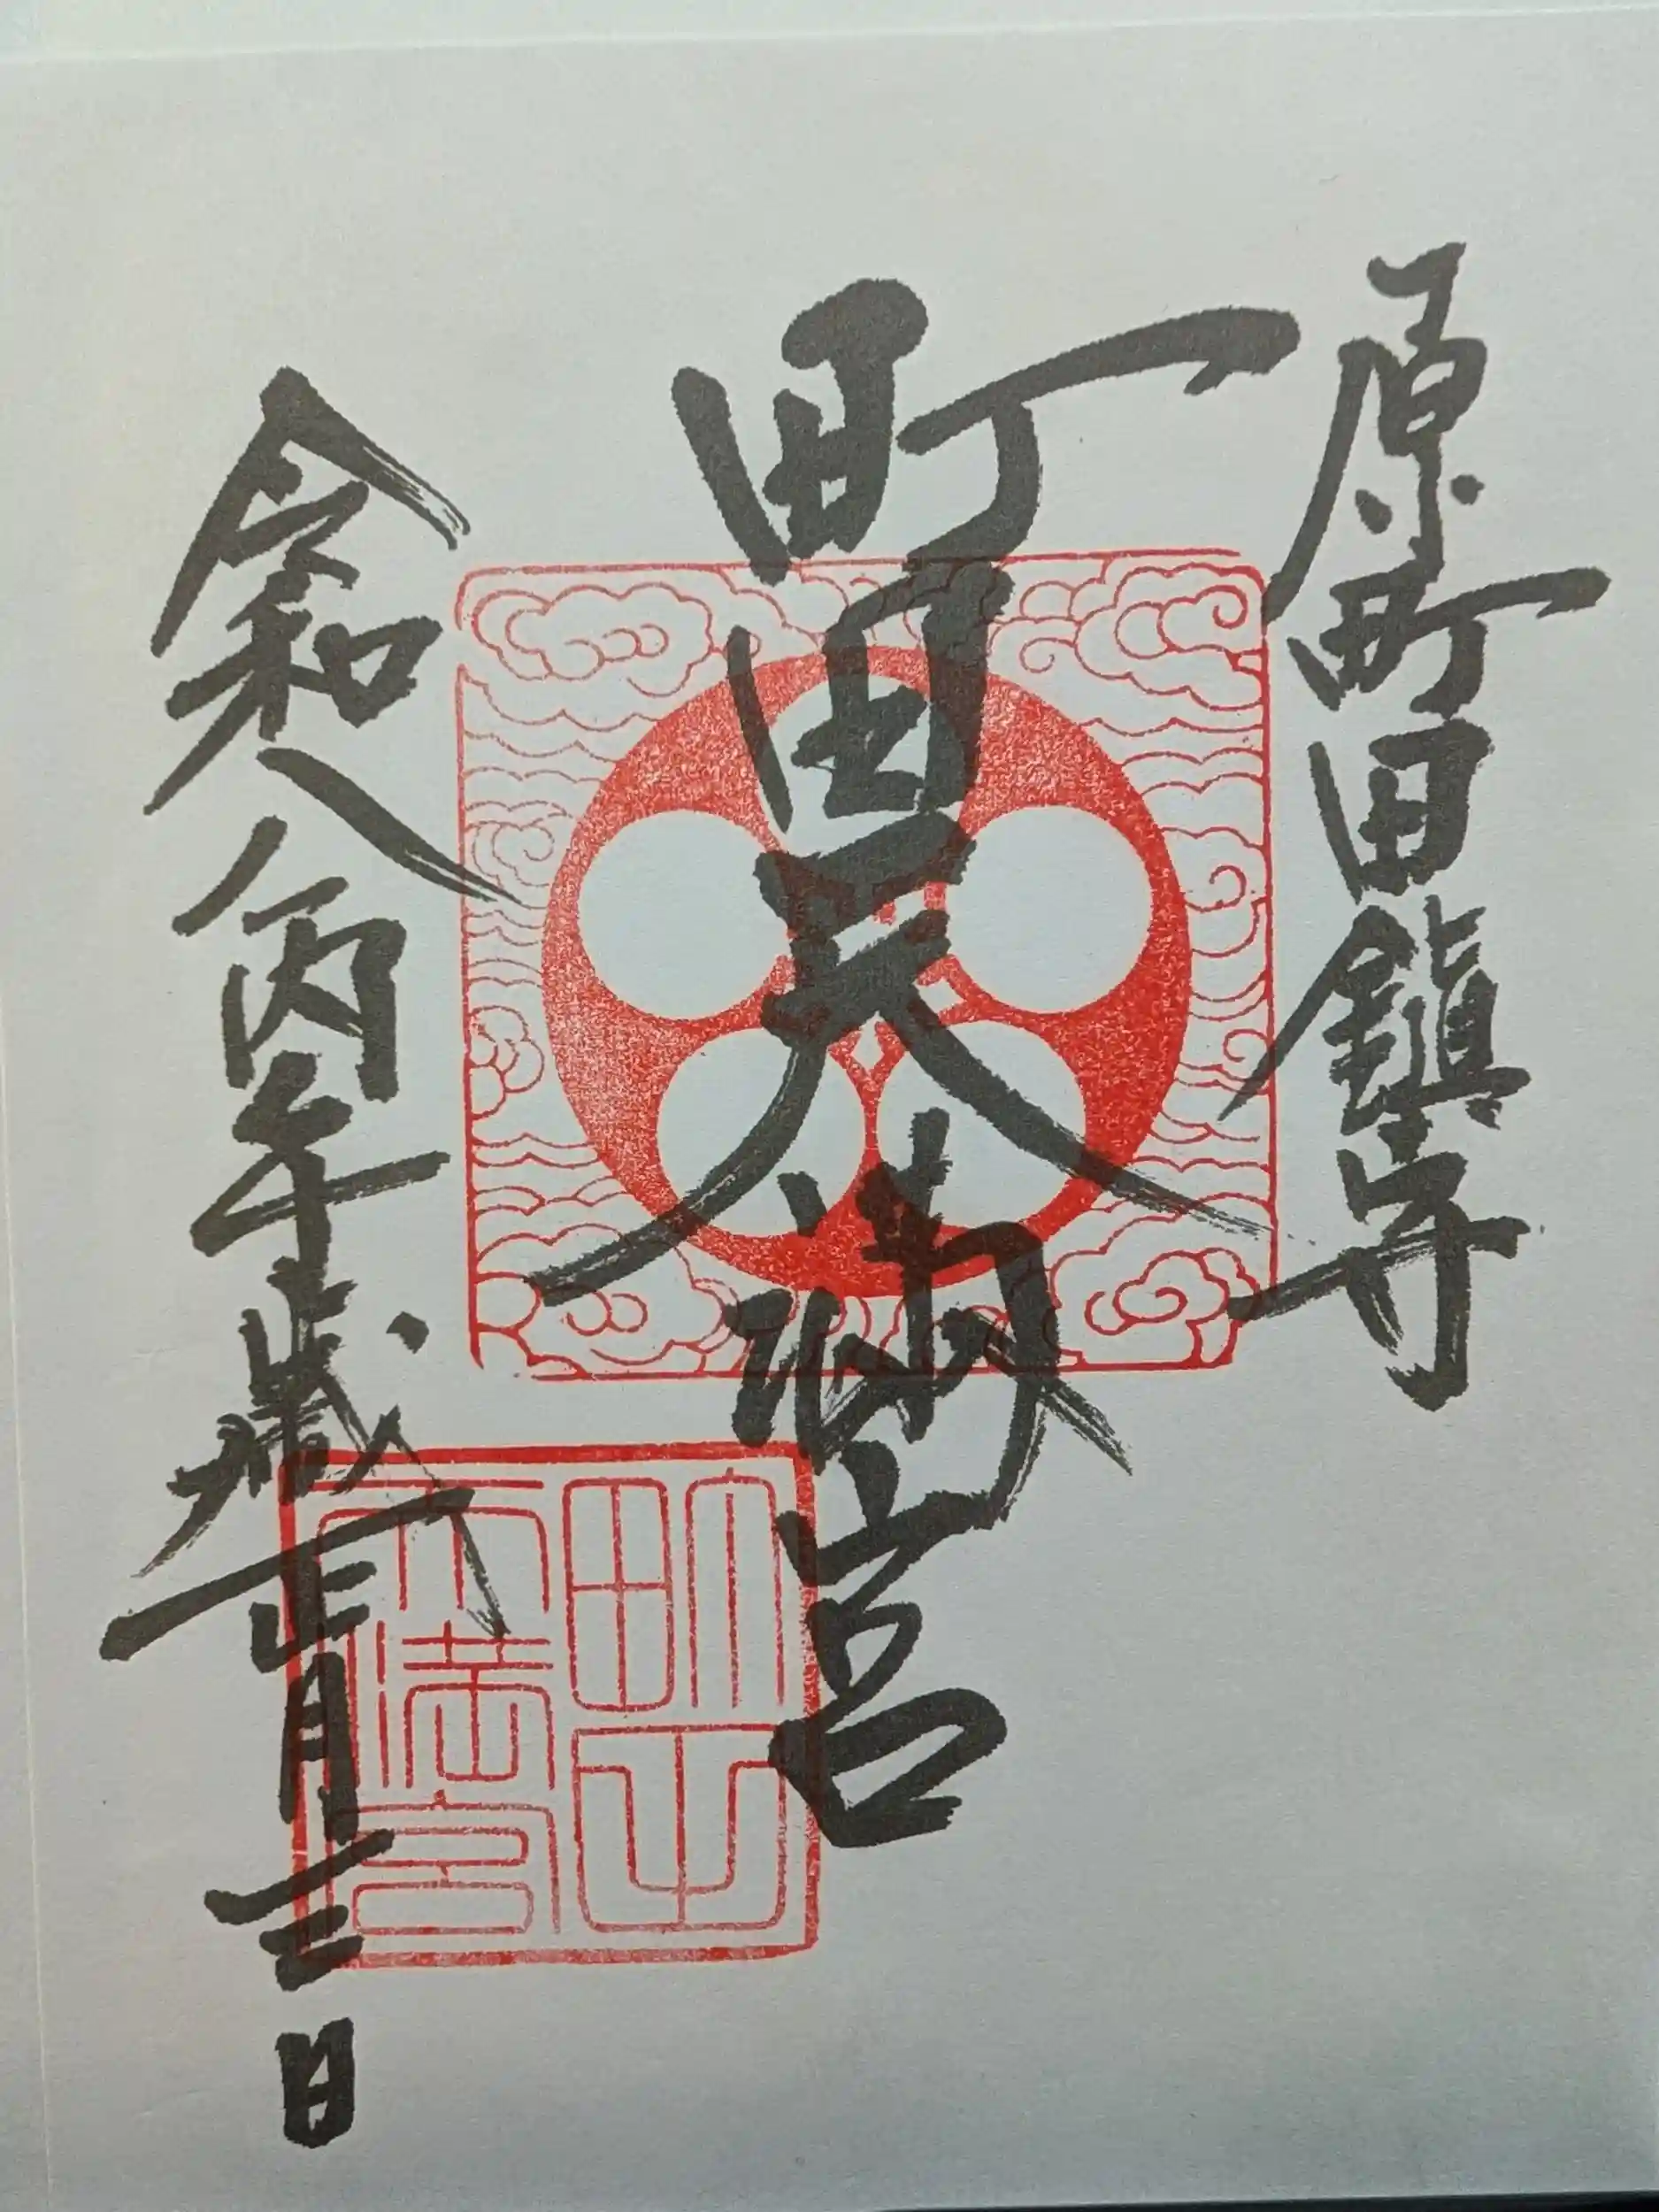 原町田鎮守
町田天満宮
令和八丙午歳正月三日
町田天満宮